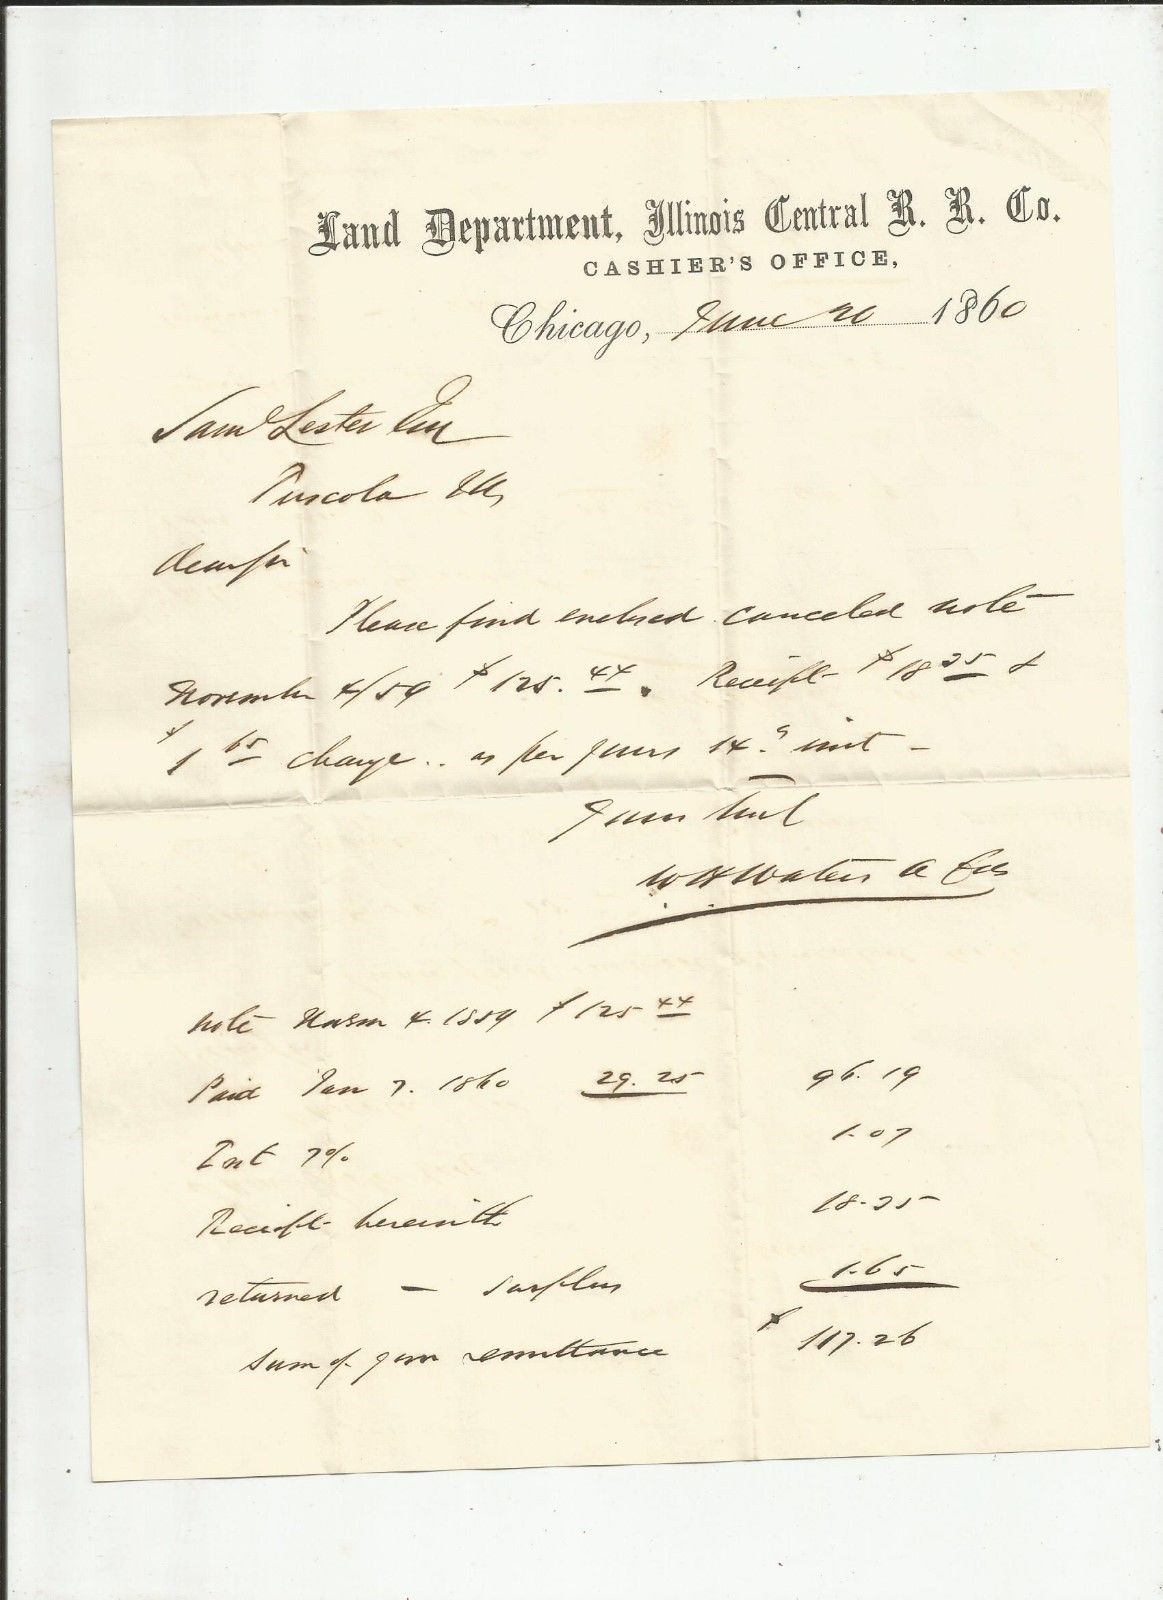 Land Department, Illinois Central R. R. Co.
CASHIER'S OFFICE,
Chicago, June 20 1860
Saml Lester Esq
Tuscola Ills
Dear Sir
Please find enclosed canceled note
November 4/59 $125.44. Receipt $18 35 &
$1 65 charge .. as per yours 14th inst -
Yours truly
W H Waters
note Novem 4. 1859 $125 44
Paid Jan 7. 1860 29.25 96.19
Int 7% 1.07
Receipt herewith 18.35
returned - surplus 1.65
Sum of your remittance $117.26